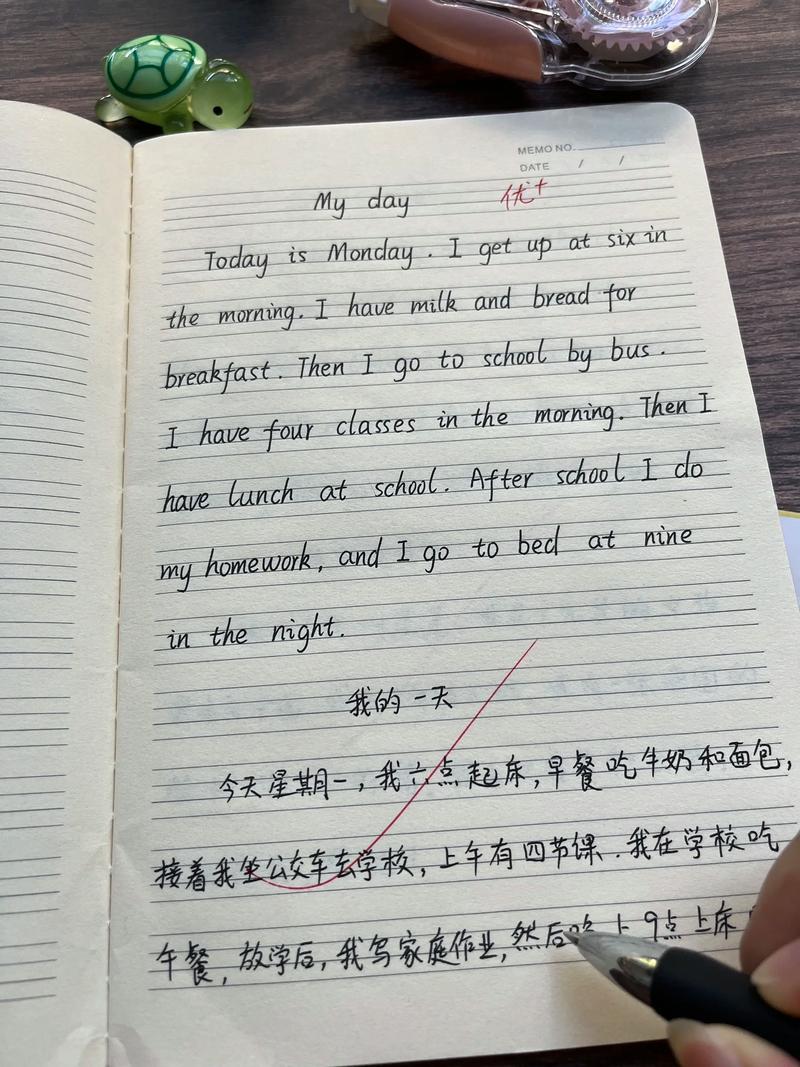 MEMO NO.
DATE / /
My day 优+
Today is Monday. I get up at six in
the morning. I have milk and bread for
breakfast. Then I go to school by bus.
I have four classes in the morning. Then I
have lunch at school. After school I do
my homework, and I go to bed at nine
in the night.
我的一天
今天星期一,我六点起床,早餐吃牛奶和面包,
接着我坐公交车去学校,上午有四节课.我在学校吃
午餐,放学后,我写家庭作业,然后晚上9点上床